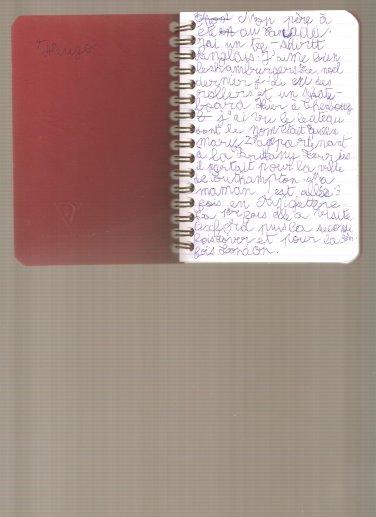 Hugo
Mon père à
été au Canada.
J'ai un
anglais. J'aime bien
les hamburgers. Le noël
dernier j'ai eu des
rollers et un skate-
board. Hier à Cherbourg
j'ai vu le bateau
dont le nom était Queen
Mary 2 appartenant
à la
il partait pour la ville
de Southampton. Ma
maman est allée 3
fois en Angleterre.
La 1ère fois elle a visité
Oxford puis la seconde
fois Dover et pour la 3èm
fois London.